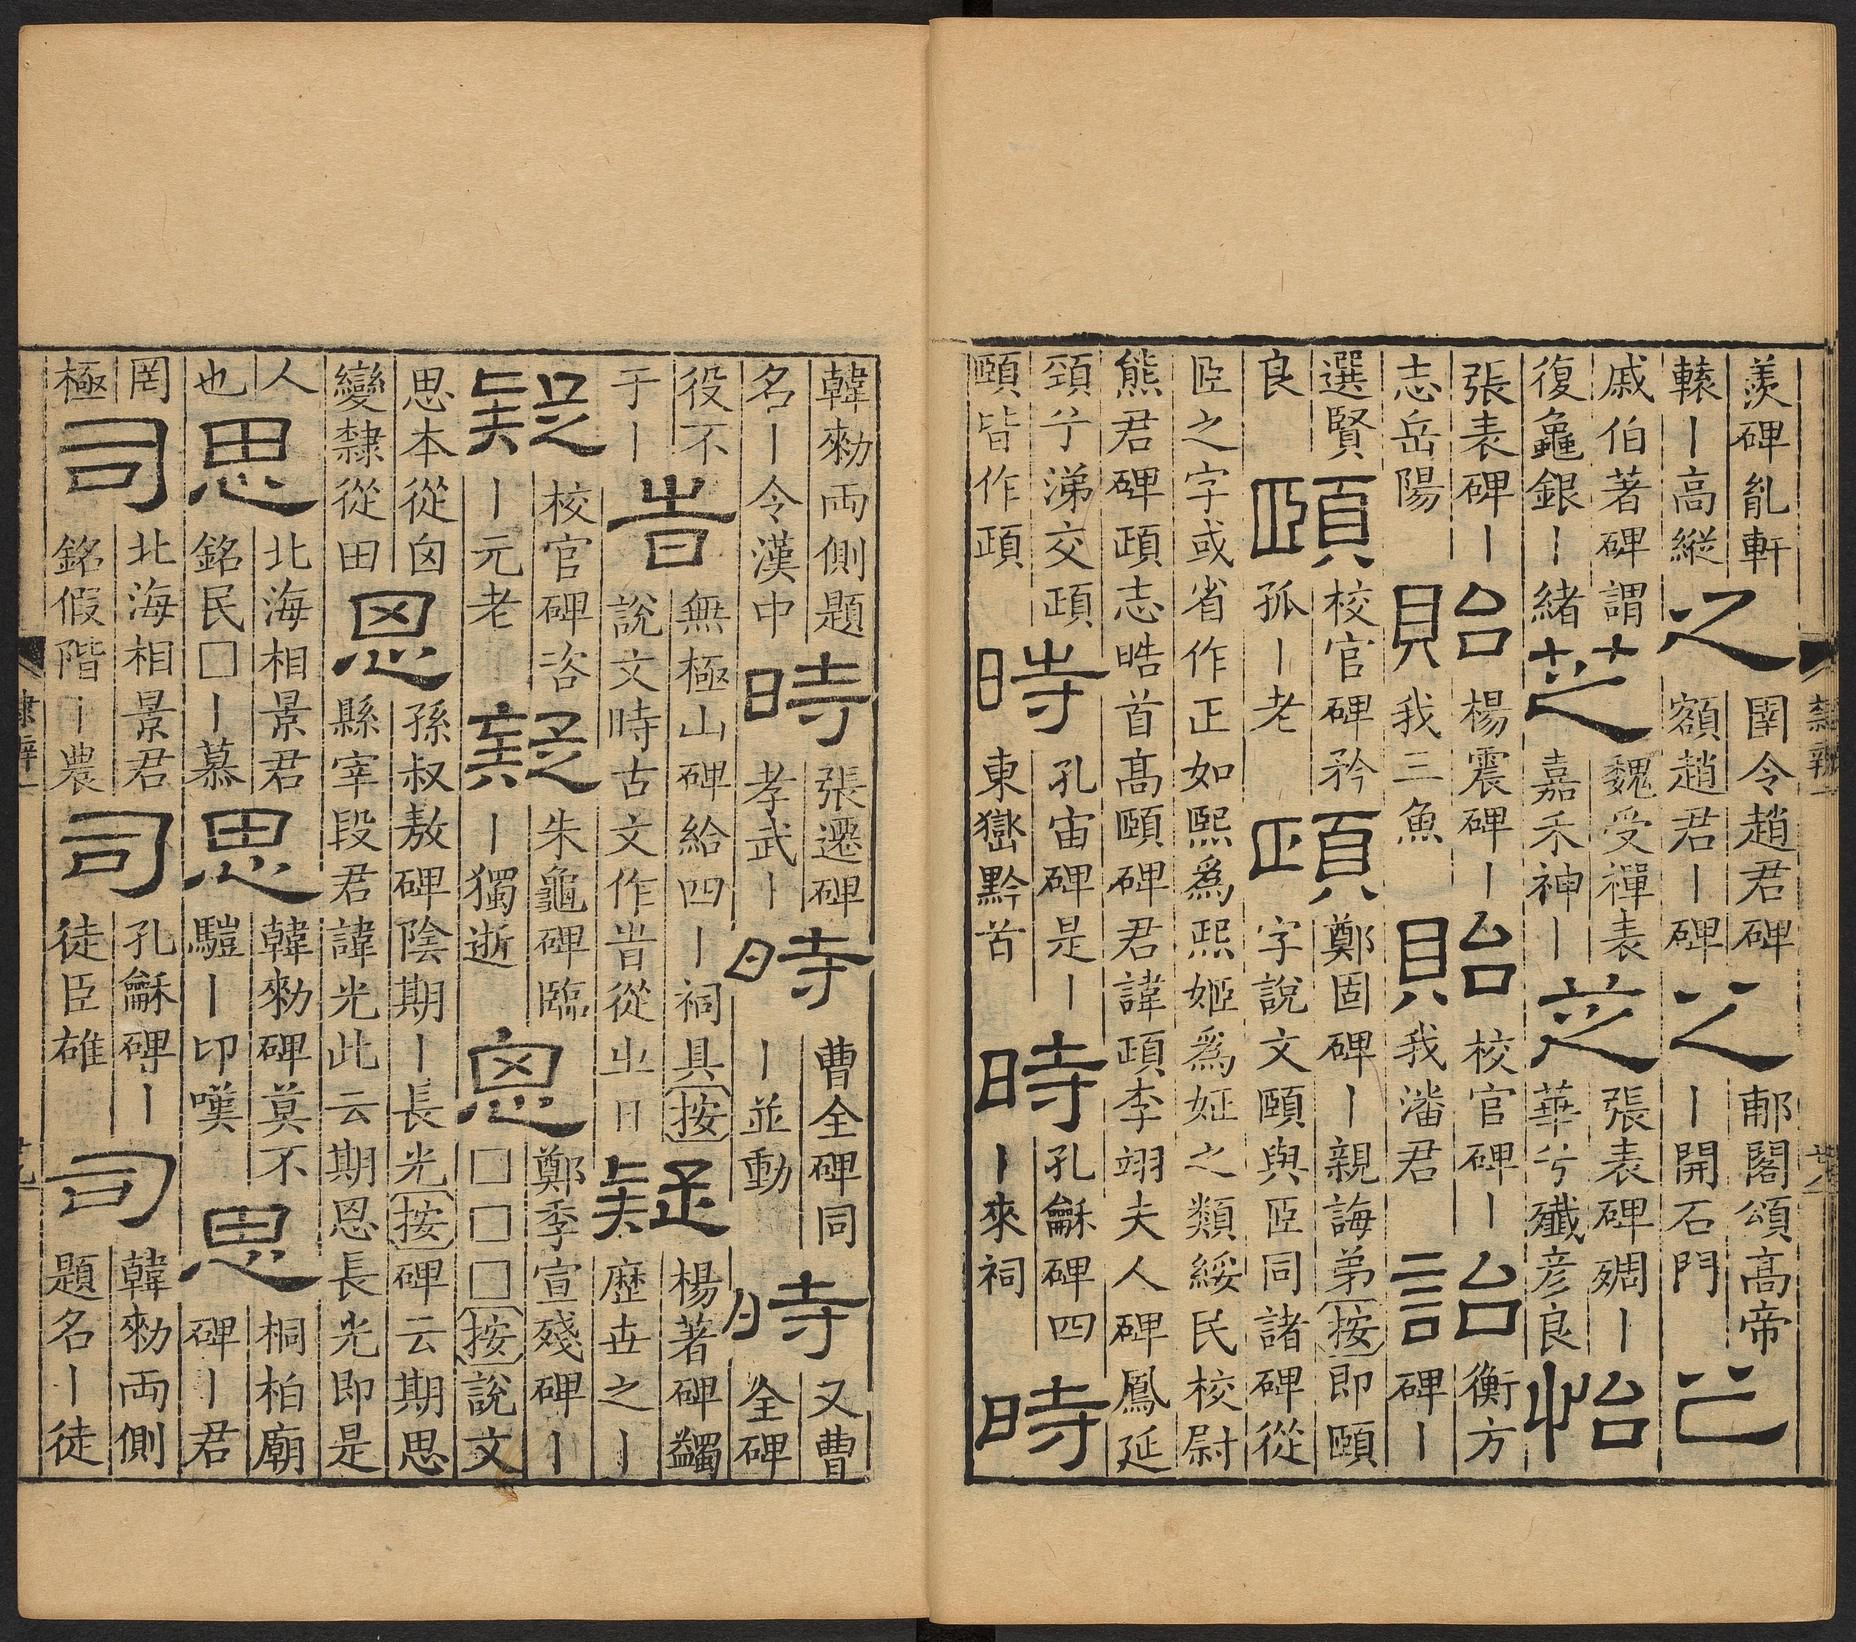 羨碑亂軒
轅丨高縱
之
圉令趙君碑
額趙君丨碑
之
郙閣頌高帝
丨開石門
之
戚伯著碑謂
復龜銀丨緒
芝
魏受禪表
嘉禾神丨
芝
張表碑殦丨
華兮殲彦良
怡
張表碑丨
志岳陽
貽
楊震碑丨
我三魚
貽
校官碑丨
我潘君
詒
衡方
碑丨
選賢
良
頤
校官碑矜
孤丨老
頤
鄭固碑丨親誨弟按即頤
字說文頤與𦣞同諸碑從
𦣞之字或省作正如熙爲煕姬爲姃之類綏民校尉
熊君碑頙志晧首高頤碑君諱頙李翊夫人碑鳳延
頸兮涕交頙
頤皆作頙
時
孔宙碑是丨
東嶽黔首
時
孔龢碑四
丨來祠
時
韓勑両側題
名丨令漢中
時
張遷碑
孝武丨
時
曹全碑同
丨並動
時
又曹
全碑
役不
于丨
旹
無極山碑給四丨祠具按
說文時古文作旹從㞢日
疑
楊著碑蠲
歷世之丨
疑
校官碑咨
丨元老
疑
朱龜碑臨
丨獨逝
恖
鄭季宣殘碑丨
□□□按說文
思本從囟
變隸從田
恖
孫叔敖碑陰期丨長光按碑云期思
縣宰段君諱光此云期恩長光即是
人
也
思
北海相景君
銘民□丨慕
思
韓勑碑莫不
驓丨卬嘆
思
桐柏廟
碑丨君
罔
極
司
北海相景君
銘假階丨農
司
孔龢碑丨
徒臣雄
司
韓勑両側
題名丨徒
隸辨一